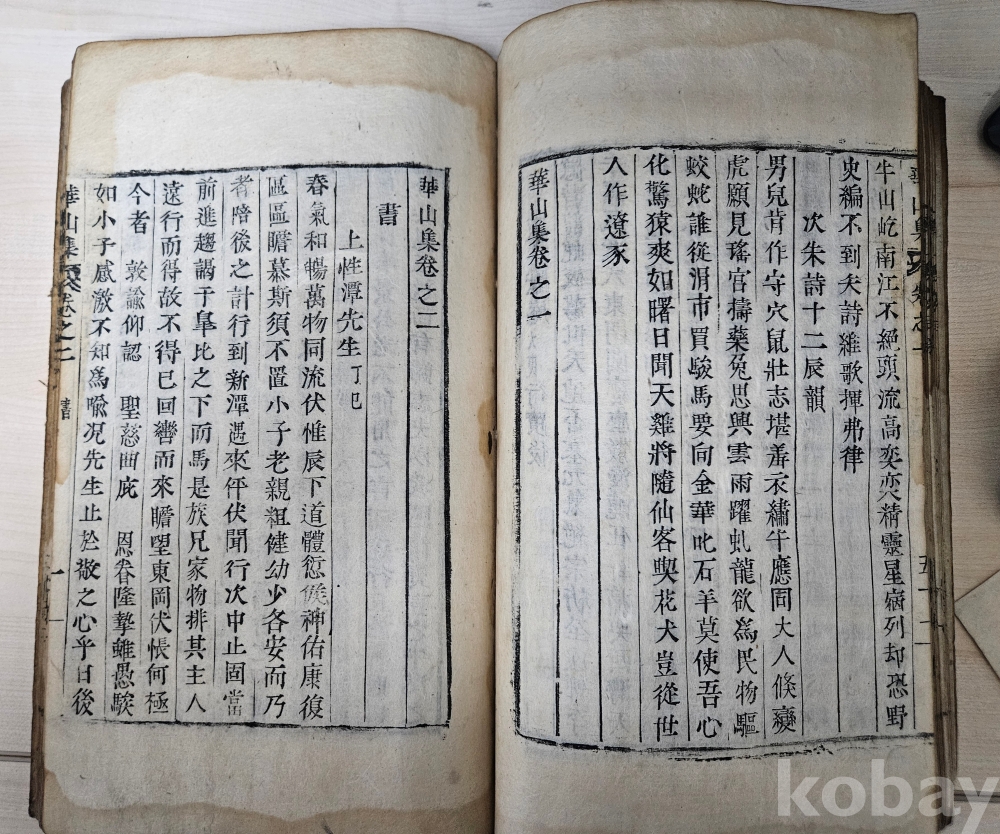 牛山屹南江不絕頭流高奕奕精靈星宿列却恐野
史編不到夫詩維歌揮弗律
次朱詩十二辰韻
男兒肯作守穴鼠壯志堪羞衣繡牛應同大人倏變
虎願見瑤宮擣藥兔思興雲雨躍虬龍欲爲民物驅
蛟蛇誰從涓市買駿馬要向金華叱石羊莫使吾心
化驚猿爽如曙日聞天雞將隨仙客喫花犬豈從世
人作遼豕
華山集卷之一
華山集卷之二
書
上性潭先生 丁巳
春氣和暢萬物同流伏惟辰下道體愆候神佑康復
區區瞻慕斯須不置小子老親粗健幼少各安而乃
者陪後之計行到新潭遇來伻伏聞行次中止固當
前進趨謁于皐比之下而馬是族兄家物排其主人
遠行而得故不得已回轡而來瞻望東岡伏悵何極
今者 敦諭仰認 聖慈曲庇 恩眷隆摯雖愚騃
如小子感激不知爲喩況先生止於敬之心乎日後
華山集 卷之二 書 一
kobay